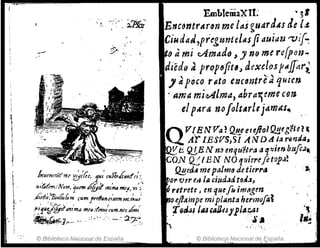 Inuenerūt me vigiles, qui custodiunt ci-
uitatem: Num, quem diligit anima mea, vi-
distis? Paululum cum pertransissem eos, inue-
ni quē diligit anima mea. tenui eum, nec dimi-
© Biblioteca Nacional de España
Emblema XII. 38
Encontraron me las guardas de la
Ciudad, preguntelas si auian vis-
to à mi Amado, y no me respon-
diēdo à proposito, dexelos passar,
y à poco rato encontrè à quien
ama mi Alma, abraçeme con
el para no soltarle jamas.
QVIEN Va? Que es esto? Que gēte?
AY IESVS, SI ANDA la ronda,
QVE QIEN no enquētra a quien busca,
CON QVIEN NO quiere se topa?
Queda me palmo de tierra
por ver en la ciudad toda,
ò retrete, en que su imagen
no estampe mi planta hermosa?
Todas las calles y plazas
© Biblioteca Nacional de España